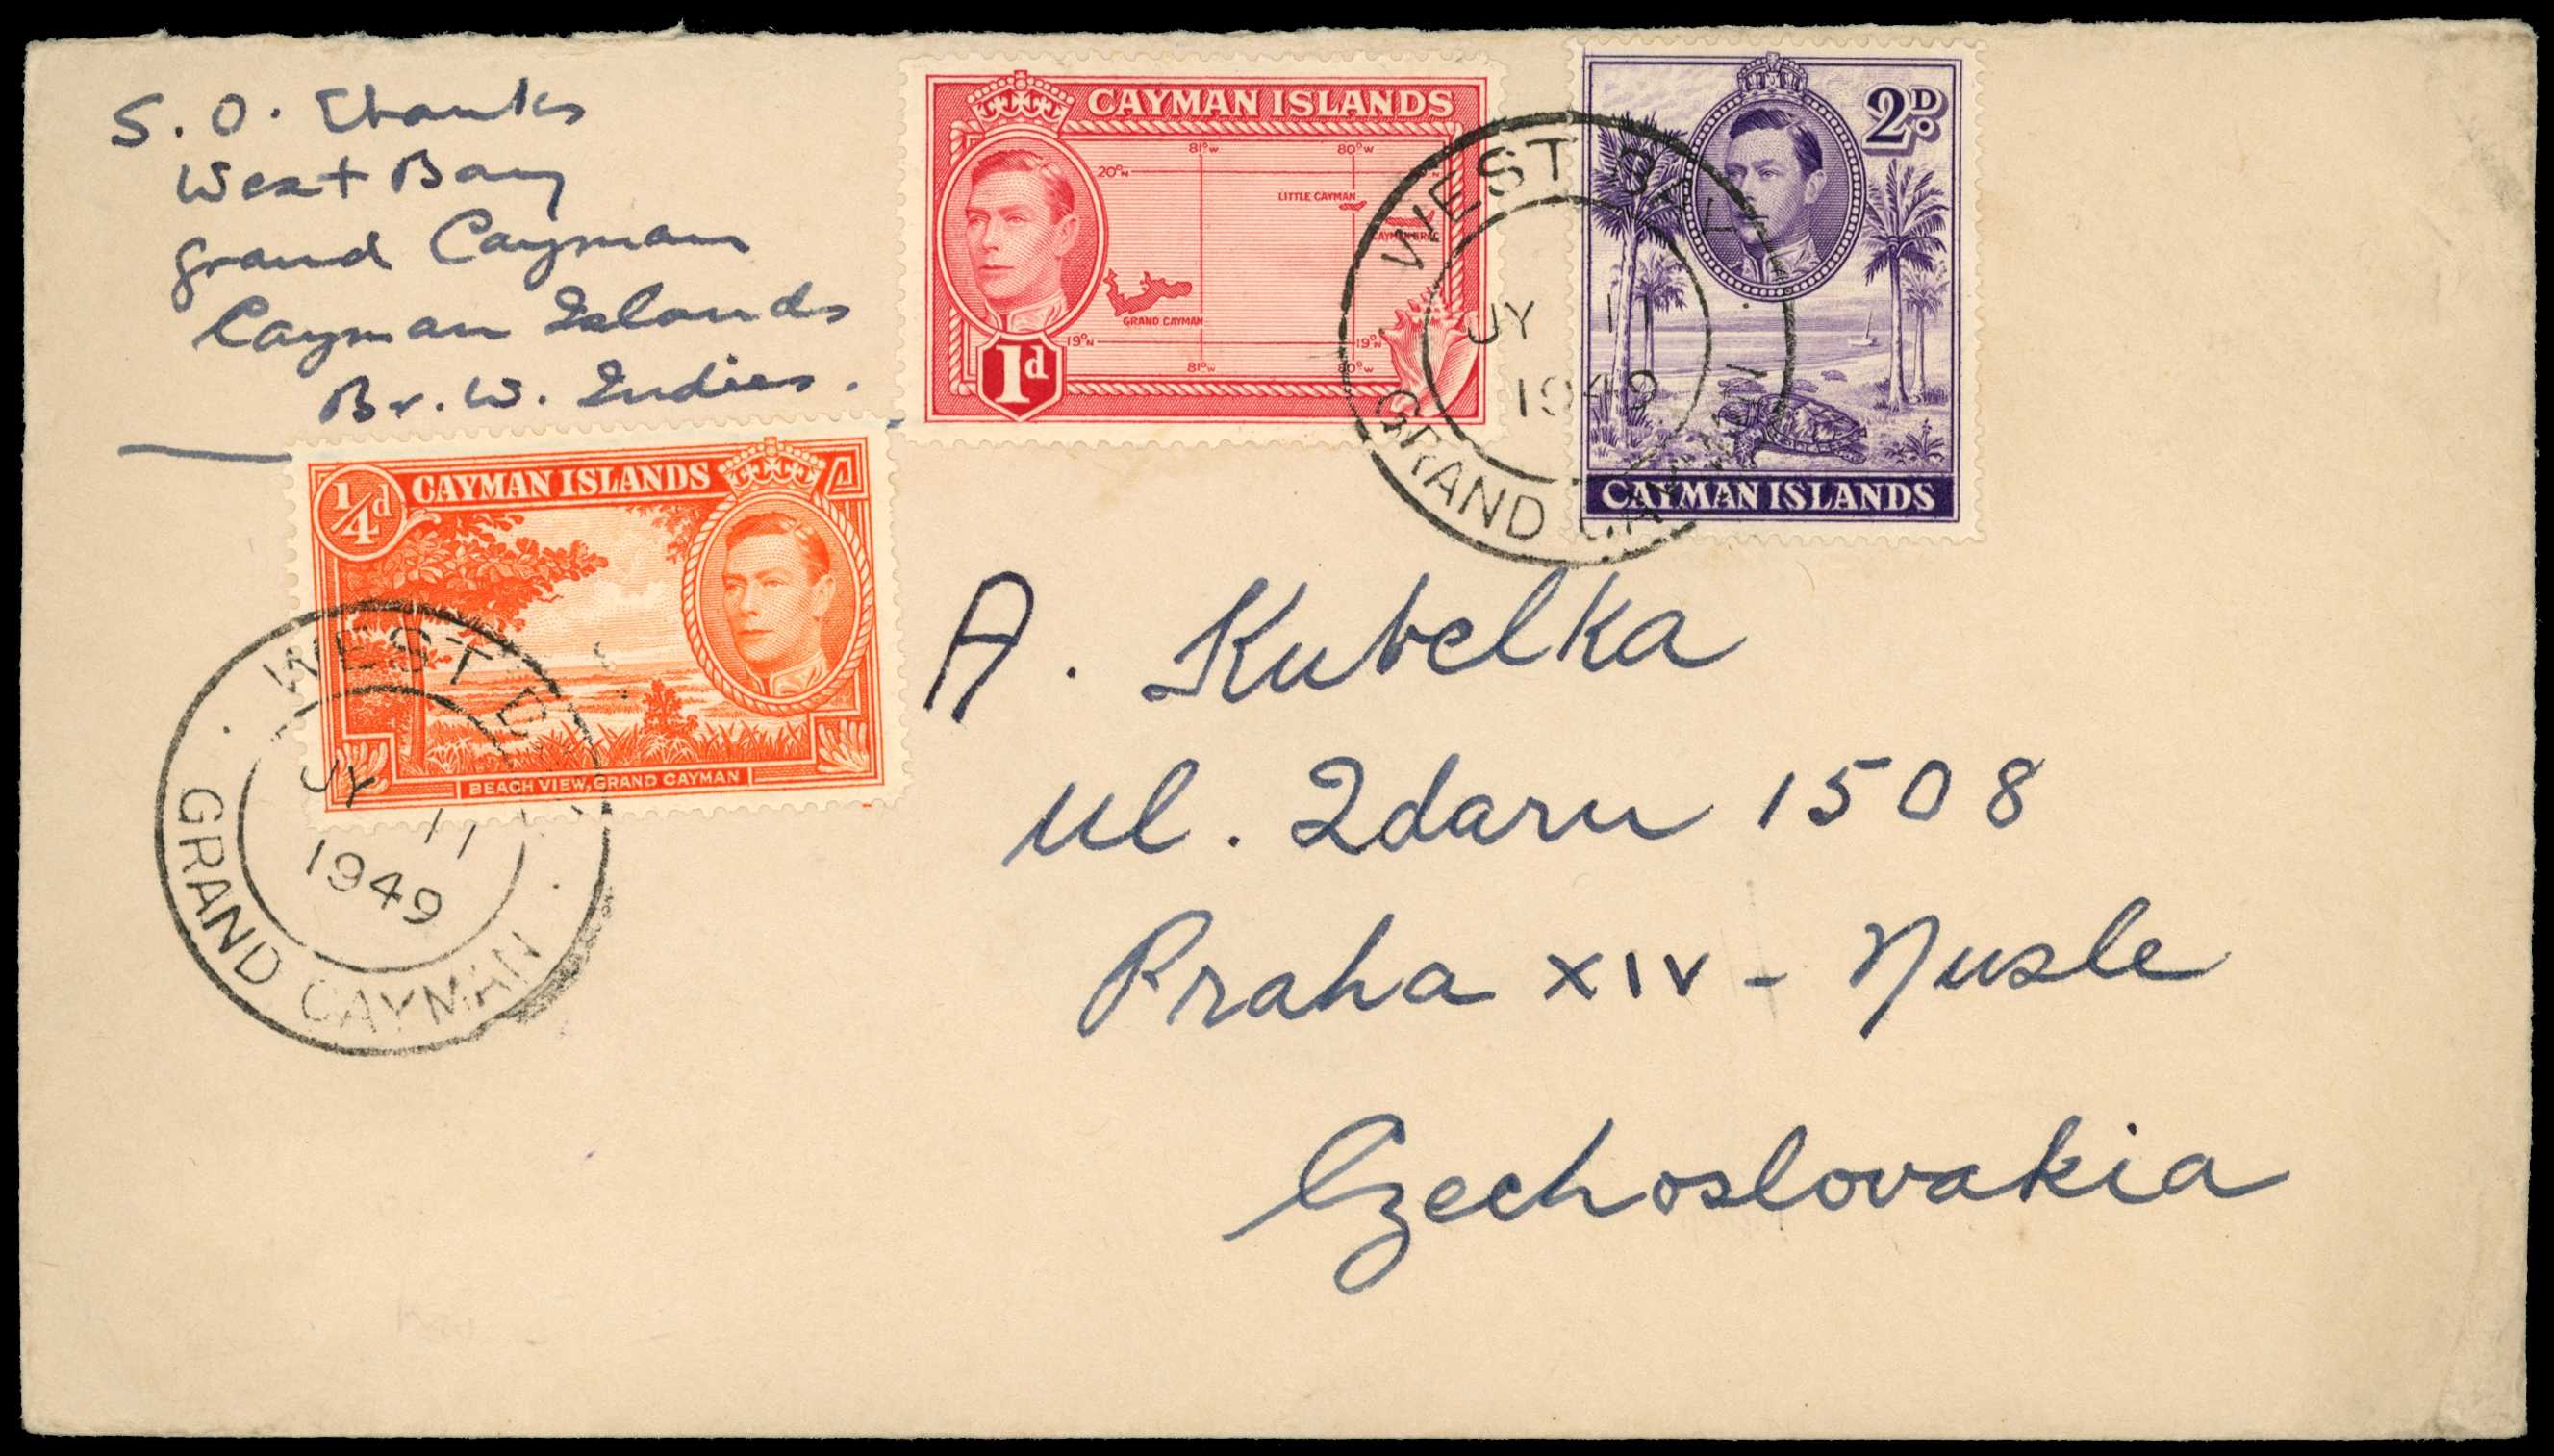 S. O. Ebanks
West Bay
Grand Cayman
Cayman Islands
Br. W. Indies.
CAYMAN ISLANDS
81°W 80°W
20°N
LITTLE CAYMAN
CAYMAN BRAC
GRAND CAYMAN
19°N 19°N
81°W 80°W
1d
2D.
CAYMAN ISLANDS
WEST BAY
JY 11
1949
GRAND CAYMAN
1/4d CAYMAN ISLANDS
BEACH VIEW, GRAND CAYMAN
WEST B
JY 11
1949
GRAND CAYMAN
A. Kubelka
ul. Zdaru 1508
Praha XIV - Nusle
Czechoslovakia